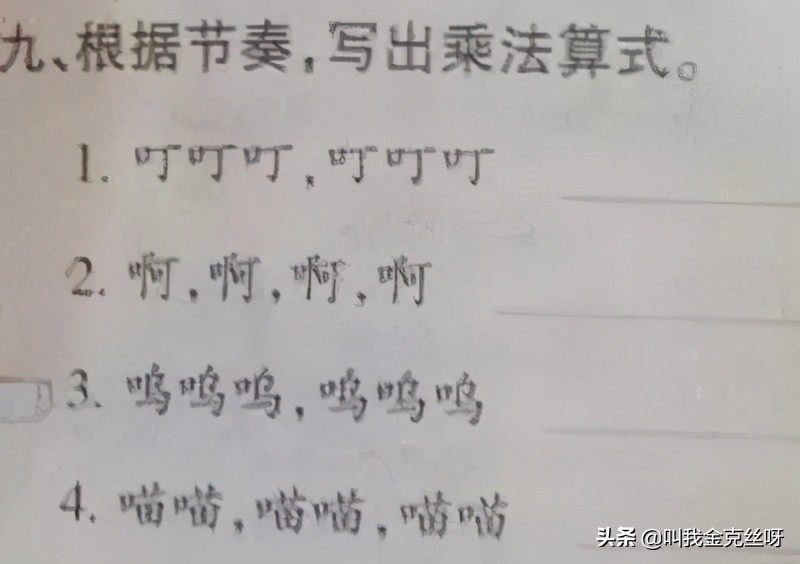 九、根据节奏,写出乘法算式。
1. 叮叮叮,叮叮叮
2. 啊,啊,啊,啊
3. 呜呜呜,呜呜呜
4. 喵喵,喵喵,喵喵
头条 @叫我金克丝呀